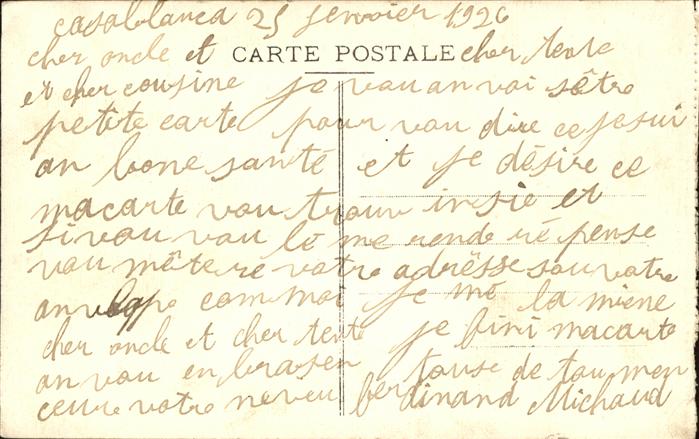 casablanca 25 fenvoier 1926
cher oncle et CARTE POSTALE cher tente
et cher cousine je vou an voi sètre
petite carte pour vou dire ce je sui
an bone santé et je désire ce
macarte vou trouv insie et
si vou vou lé me rende ré pense
vou mâteré votre adrêsse sou votre
anvelope com moi je me la miene
cher oncle et cher tente je fini macarte
an vou en brasen touse de tou men
ceure votre neveu ferdinand Michaud